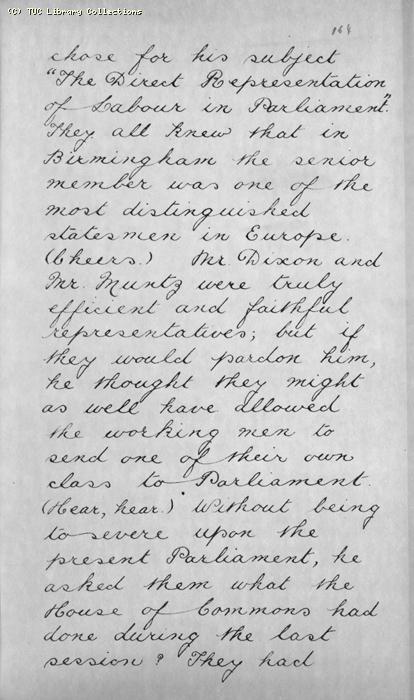 (C) TUC Library Collections
164
chose for his subject
"The Direct Representation
of Labour in Parliament".
They all knew that in
Birmingham the senior
member was one of the
most distinguished
statesmen in Europe.
(Cheers.) Mr. Dixon and
Mr. Muntz were truly
efficient and faithful
representatives; but if
they would pardon him,
he thought they might
as well have allowed
the working men to
send one of their own
class to Parliament.
(Hear, hear.) Without being
to severe upon the
present Parliament, he
asked them what the
House of Commons had
done during the last
session? They had